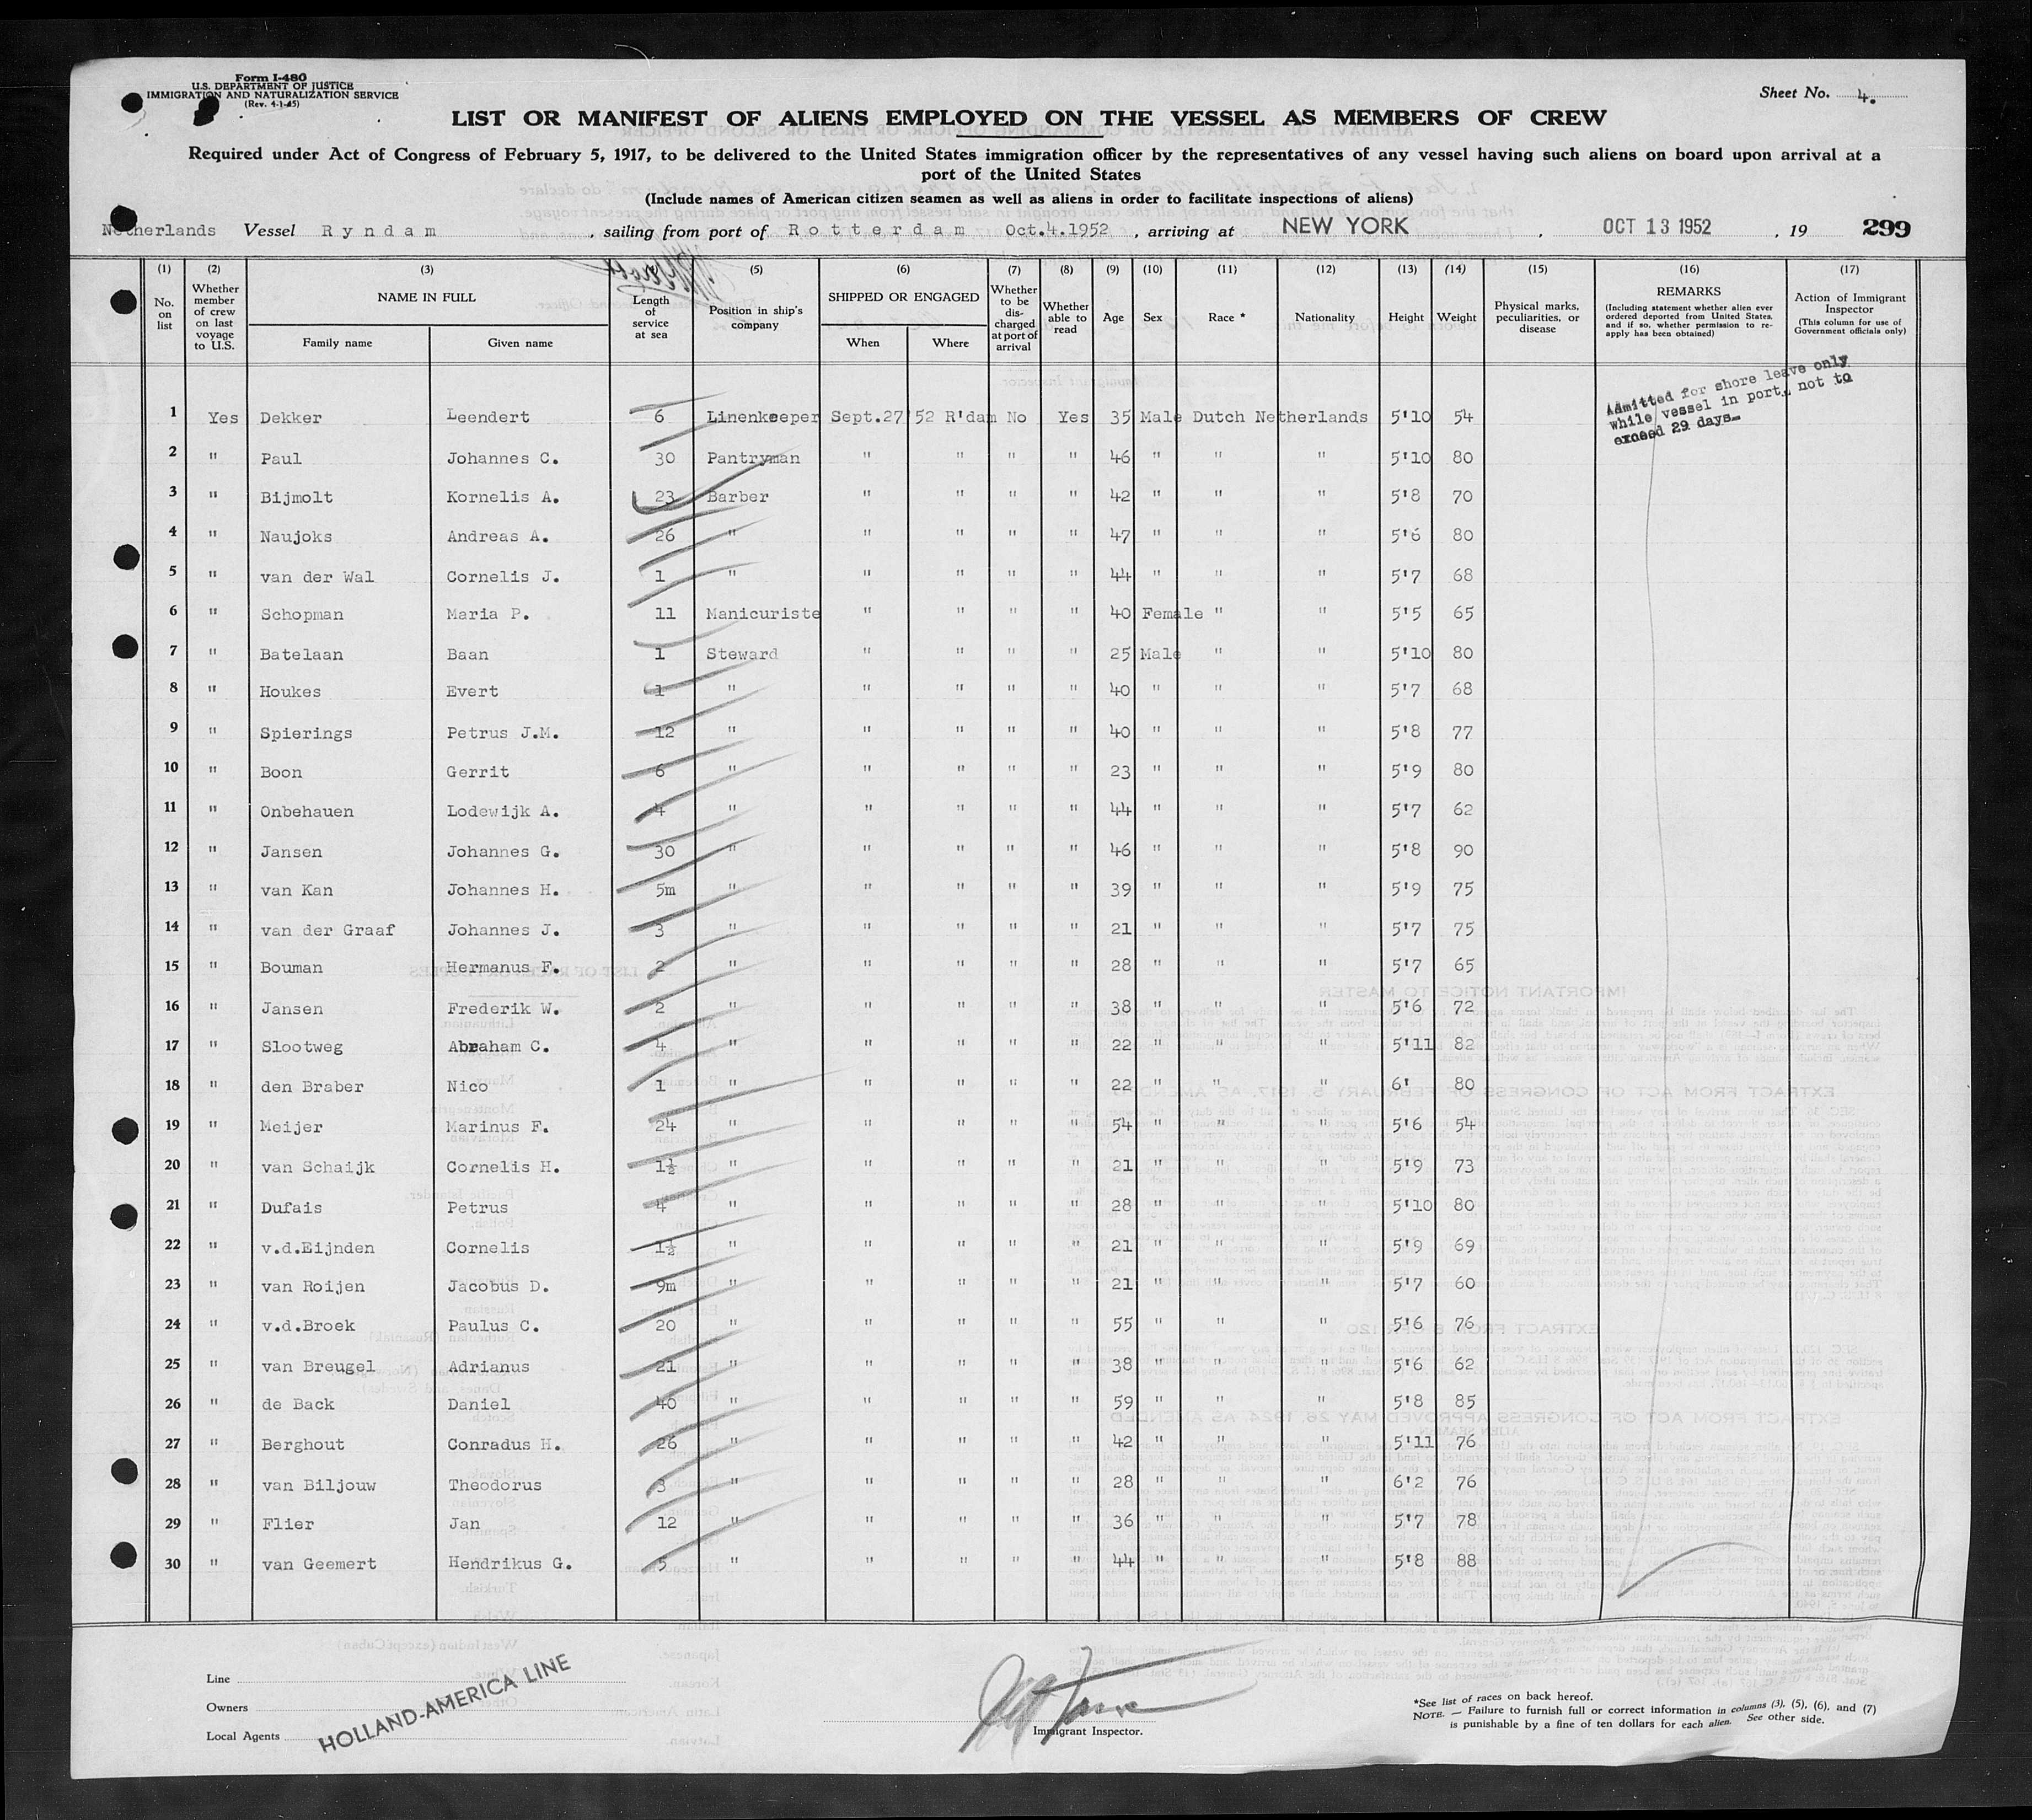 Form I-480
U.S. DEPARTMENT OF JUSTICE
IMMIGRATION AND NATURALIZATION SERVICE
(Rev. 4-1-45)
Sheet No. 4.
LIST OR MANIFEST OF ALIENS EMPLOYED ON THE VESSEL AS MEMBERS OF CREW
Required under Act of Congress of February 5, 1917, to be delivered to the United States immigration officer by the representatives of any vessel having such aliens on board upon arrival at a
port of the United States
(Include names of American citizen seamen as well as aliens in order to facilitate inspections of aliens)
Netherlands Vessel Ryndam, sailing from port of Rotterdam Oct.4.1952, arriving at NEW YORK, OCT 13 1952, 19 299
(1) (2) (3) (5) (6) (7) (8) (9) (10) (11) (12) (13) (14) (15) (16) (17)
No. on list
Whether member of crew on last voyage to U.S.
NAME IN FULL
Family name
Given name
Length of service at sea
Position in ship's company
SHIPPED OR ENGAGED
When
Where
Whether to be discharged at port of arrival
Whether able to read
Age
Sex
Race *
Nationality
Height
Weight
Physical marks, peculiarities, or disease
REMARKS
(Including statement whether alien ever ordered deported from United States, and if so, whether permission to reapply has been obtained)
Action of Immigrant Inspector
(This column for use of Government officials only)
Admitted for shore leave only
while vessel in port, not to
exceed 29 days.
1 Yes Dekker Leendert 6 Linenkeeper Sept.27'52 R'dam No Yes 35 Male Dutch Netherlands 5'10 54
2 " Paul Johannes C. 30 Pantryman " " " " 46 " " " 5'10 80
3 " Bijmolt Kornelis A. 23 Barber " " " " 42 " " " 5'8 70
4 " Naujoks Andreas A. 26 " " " " " 47 " " " 5'6 80
5 " van der Wal Cornelis J. 1 " " " " " 44 " " " 5'7 68
6 " Schopman Maria P. 11 Manicuriste " " " " 40 Female " " 5'5 65
7 " Batelaan Baan 1 Steward " " " " 25 Male " " 5'10 80
8 " Houkes Evert 1 " " " " " 40 " " " 5'7 68
9 " Spierings Petrus J.M. 12 " " " " " 40 " " " 5'8 77
10 " Boon Gerrit 6 " " " " " 23 " " " 5'9 80
11 " Onbehauen Lodewijk A. 4 " " " " " 44 " " " 5'7 62
12 " Jansen Johannes G. 30 " " " " " 46 " " " 5'8 90
13 " van Kan Johannes H. 5m " " " " " 39 " " " 5'9 75
14 " van der Graaf Johannes J. 3 " " " " " 21 " " " 5'7 75
15 " Bouman Hermanus F. 2 " " " " " 28 " " " 5'7 65
16 " Jansen Frederik W. 2 " " " " " 38 " " " 5'6 72
17 " Slootweg Abraham C. 4 " " " " " 22 " " " 5'11 82
18 " den Braber Nico 1 " " " " " 22 " " " 6' 80
19 " Meijer Marinus F. 24 " " " " " 54 " " " 5'6 54
20 " van Schaijk Cornelis H. 1½ " " " " " 21 " " " 5'9 73
21 " Dufais Petrus 4 " " " " " 28 " " " 5'10 80
22 " v.d.Eijnden Cornelis 1½ " " " " " 21 " " " 5'9 69
23 " van Roijen Jacobus D. 9m " " " " " 21 " " " 5'7 60
24 " v.d.Broek Paulus C. 20 " " " " " 55 " " " 5'6 76
25 " van Breugel Adrianus 21 " " " " " 38 " " " 5'6 62
26 " de Back Daniel 40 " " " " " 59 " " " 5'8 85
27 " Berghout Conradus H. 26 " " " " " 42 " " " 5'11 76
28 " van Biljouw Theodorus 3 " " " " " 28 " " " 6'2 76
29 " Flier Jan 12 " " " " " 36 " " " 5'7 78
30 " van Geemert Hendrikus G. 5 " " " " " 44 " " " 5'8 88
Line
Owners
Local Agents
HOLLAND-AMERICA LINE
Immigrant Inspector.
*See list of races on back hereof.
NOTE. — Failure to furnish full or correct information in columns (3), (5), (6), and (7)
is punishable by a fine of ten dollars for each alien. See other side.